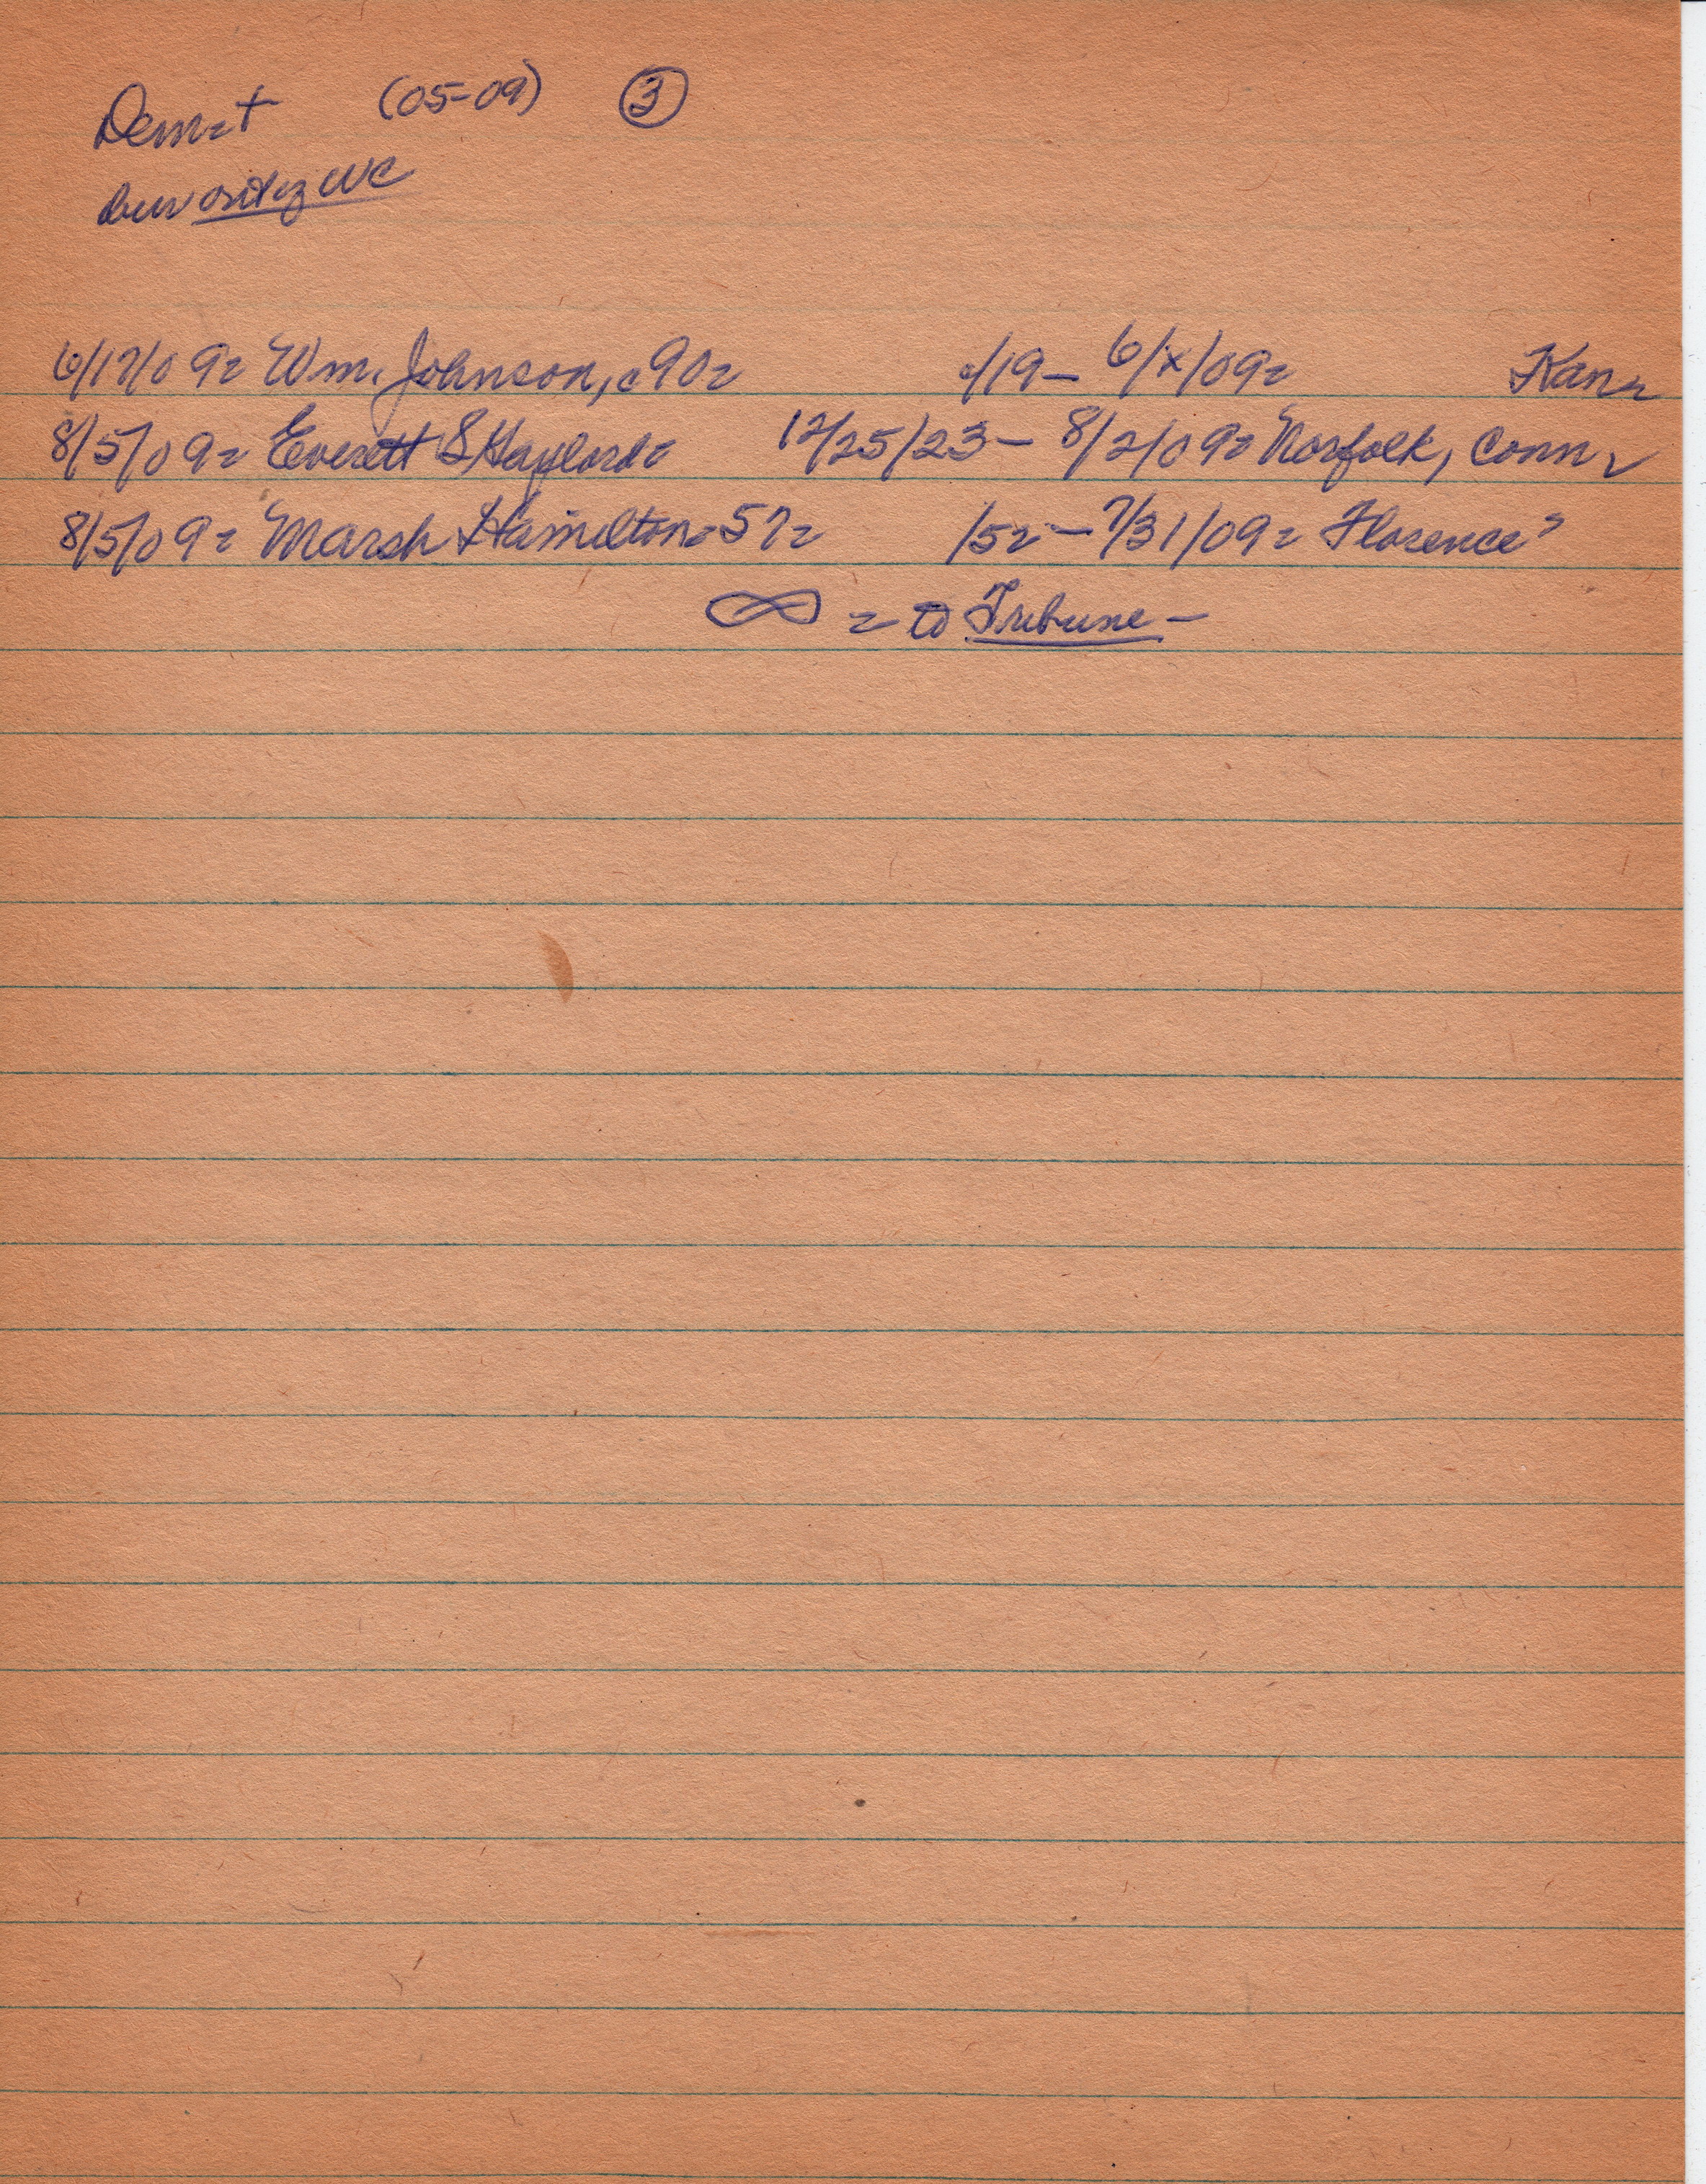 Dem=t (05-09) ③
6/17/09= Wm. Johnson, c90= c/19- 6/x/09= Kan=
8/5/09= Everett S Gaylord= 12/25/23- 8/2/09= Norfolk, Conn=
8/5/09= Marsh Hamilton=57= /52-7/31/09= Florence
∞ = to Tribune-